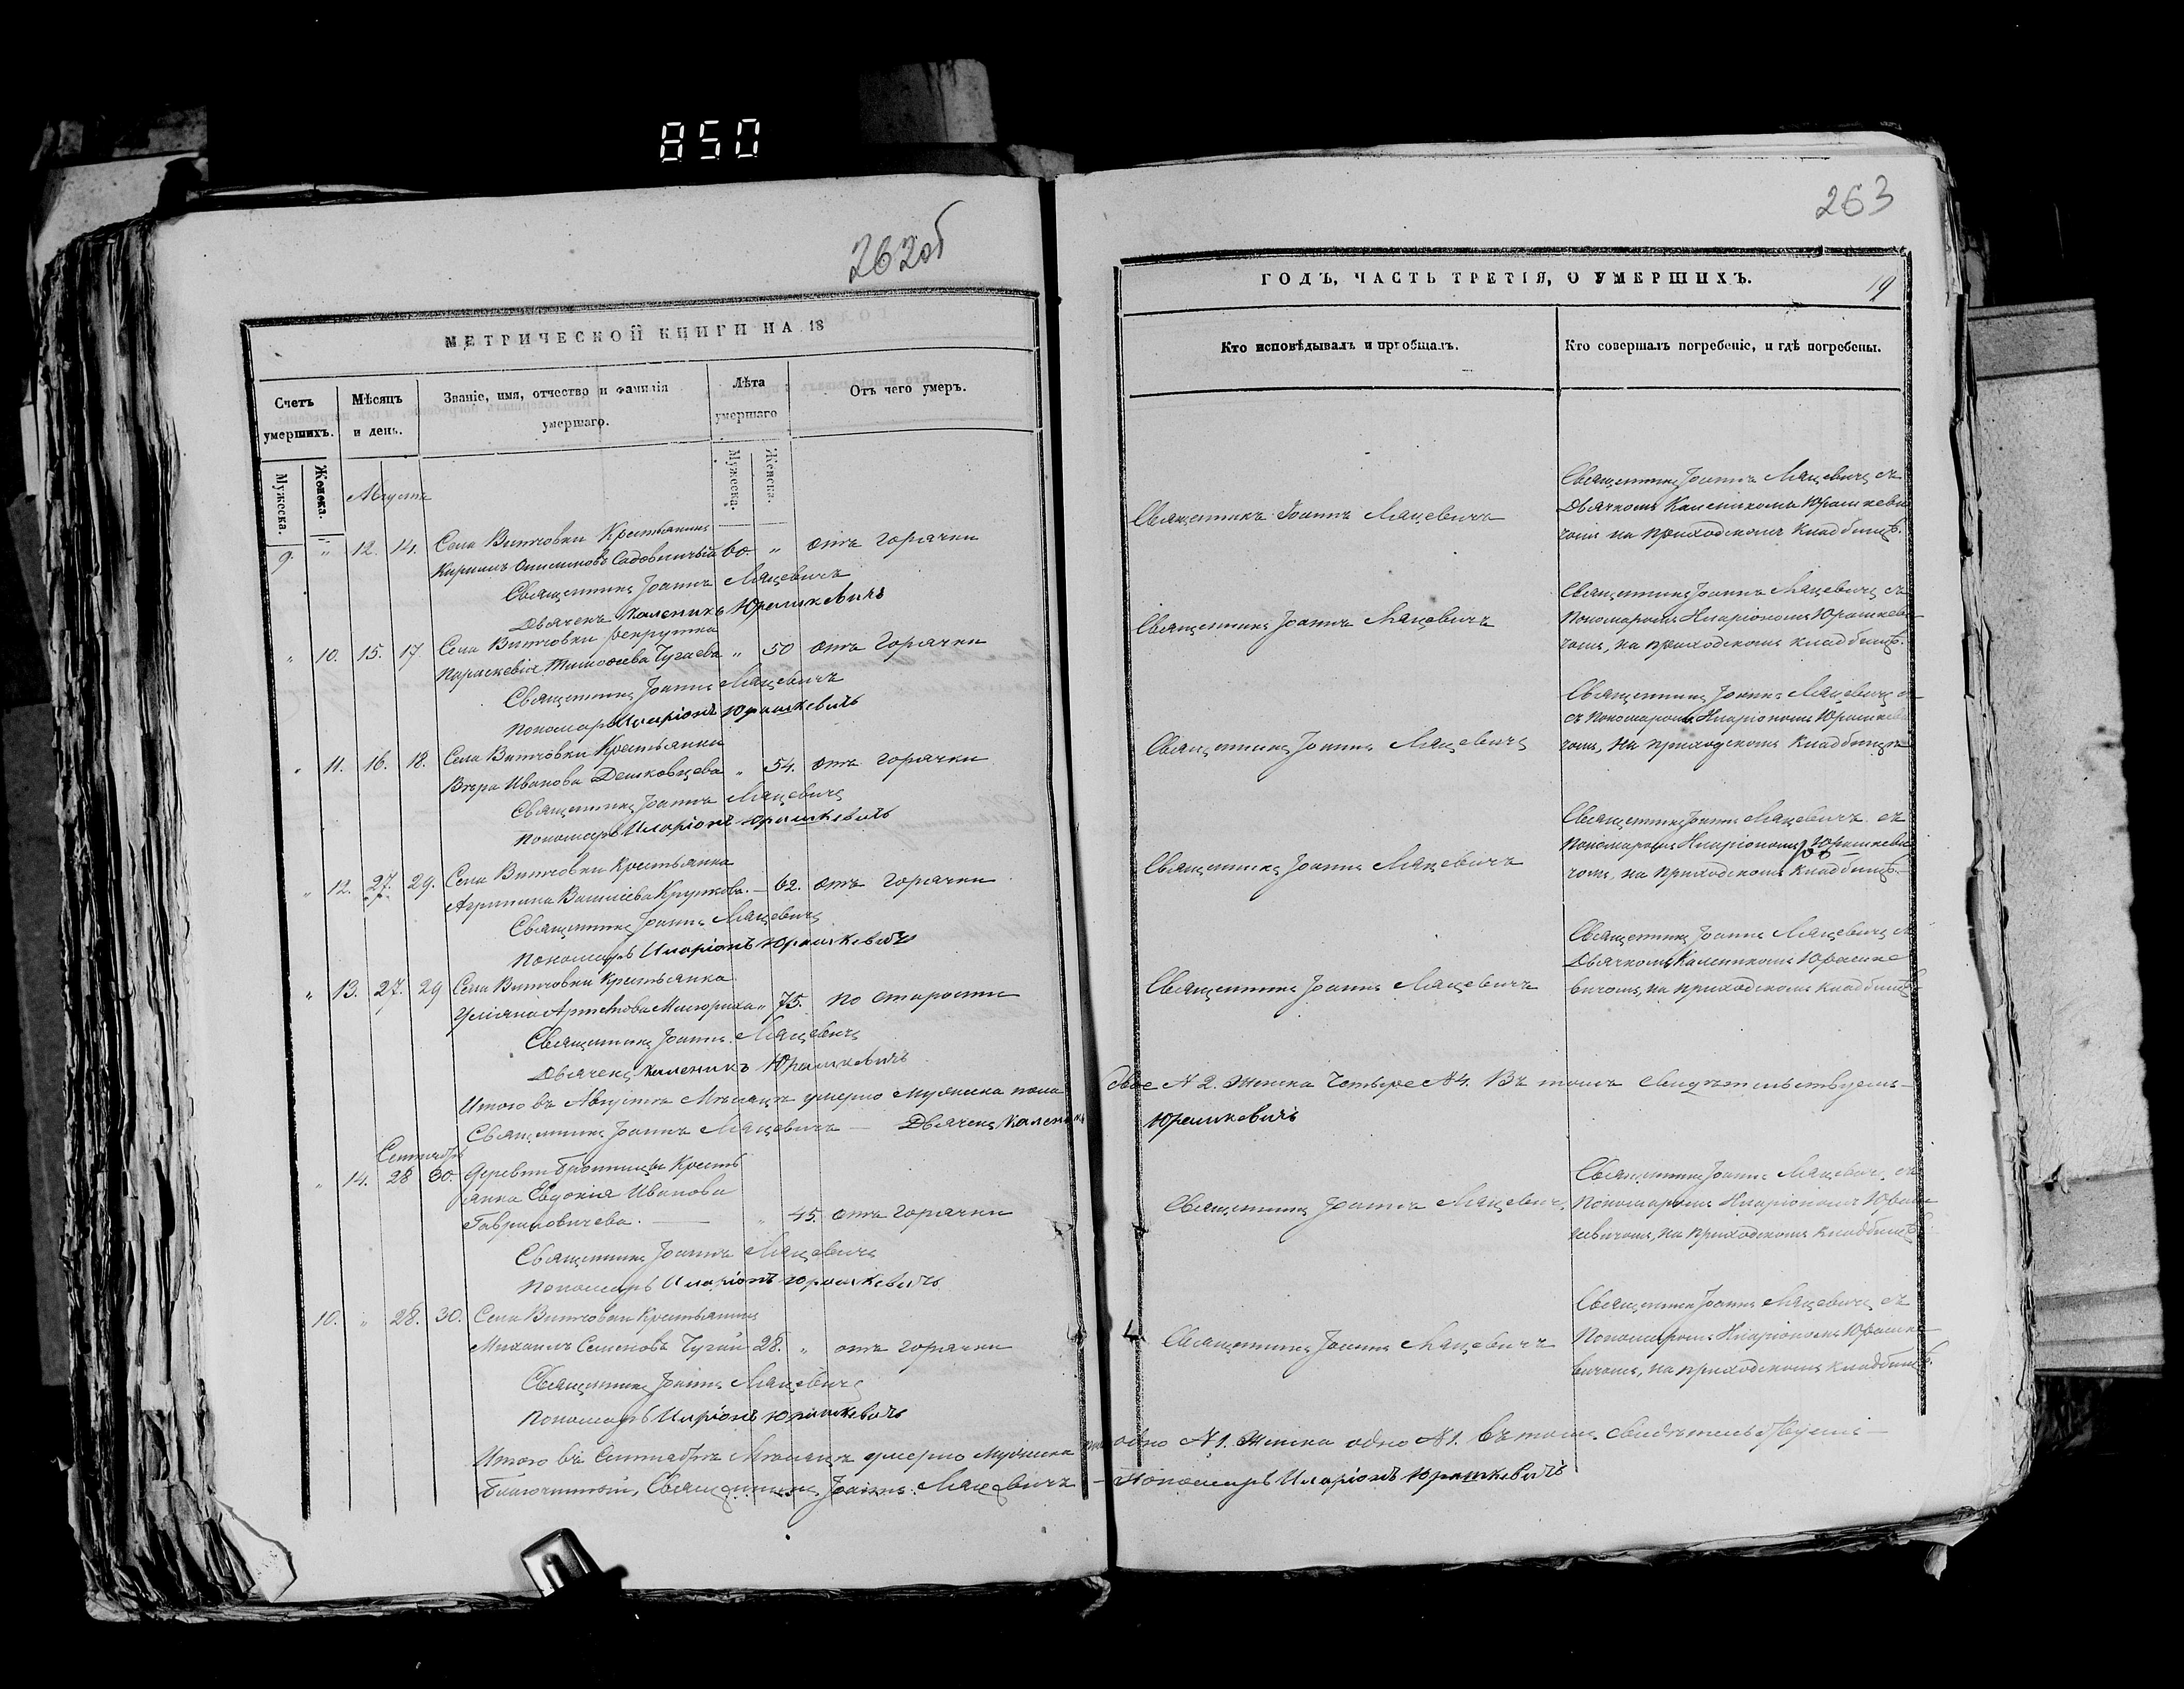 850
262об
МЕТРИЧЕСКОЙ КНИГИ НА 18
Счетъ умершихъ.
Мѣсяцъ и день.
Званіе, имя, отчество и фамилія умершаго.
Лѣта умершаго
Отъ чего умеръ.
Мужеска.
Женска.
Мужеска.
Женска.
Августа
9. " 12. 14. Села Витчовки Крестьянинъ
Кирилъ Садовничій 60 " отъ горячки
Священникъ Іоаннъ Мацевичъ
Дьячекъ Каленикъ Юрашкевичъ
" 10. 15. 17. Села Витчовки рекрутка
Параскевія Тимоѳеева Чугаева " 50 отъ горячки
Священникъ Іоаннъ Мацевичъ
Пономарь Иларіонъ Юрашкевичъ
" 11. 16. 18. Села Витчовки Крестьянка
Вѣра Иванова Демковцева " 54. отъ горячки
Священникъ Іоаннъ Мацевичъ
Пономарь Иларіонъ Юрашкевичъ
" 12. 27. 29. Села Витчовки Крестьянка
Агрипина Василіева Крупкова. — 62. отъ горячки
Священникъ Іоаннъ Мацевичъ
Пономарь Иларіонъ Юрашкевичъ
" 13. 27. 29 Села Витчовки Крестьянка
Уліяна " 75. по старости
Священникъ Іоаннъ Мацевичъ
Дьячекъ Каленикъ Юрашкевичъ
Итого въ Августѣ Мѣсяцѣ умерло мужеска пола
Священникъ Іоаннъ Мацевичъ — Дьячекъ Каленикъ
Сентябрь
" 14. 28 30. Деревни Бронницы Кресть
янка Евдокія Иванова
Гавриловичева. — " 45. отъ горячки
Священникъ Іоаннъ Мацевичъ
Пономарь Иларіонъ Юрашкевичъ
10. " 28. 30. Села Витчовки Крестьянинъ
Михаилъ Семеновъ Чугай 28. " отъ горячки
Священникъ Іоаннъ Мацевичъ
Пономарь Иларіонъ Юрашкевичъ
Итого въ Сентябрѣ Мѣсяцѣ умерло мужеска
Благочинный, Священникъ Іоаннъ Мацевичъ
263
ГОДЪ, ЧАСТЬ ТРЕТІЯ, О УМЕРШИХЪ.
19
Кто исповѣдывалъ и пріобщалъ.
Кто совершалъ погребеніе, и гдѣ погребены.
Священникъ Іоаннъ Мацевичъ
Священникъ Іоаннъ Мацевичъ съ
Дьячкомъ Каленикомъ Юрашкеви
чомъ на приходскомъ кладбищѣ.
Священникъ Іоаннъ Мацевичъ
Священникъ Іоаннъ Мацевичъ съ
Пономаромъ Иларіономъ Юрашкеви
чомъ, на приходскомъ кладбищѣ.
Священникъ Іоаннъ Мацевичъ
Священникъ Іоаннъ Мацевичъ
съ Пономаромъ Иларіономъ Юрашкеви
чомъ, на приходскомъ кладбищѣ
Священникъ Іоаннъ Мацевичъ
Священникъ Іоаннъ Мацевичъ съ
Пономаромъ Иларіономъ Юрашкеви
чомъ, на приходскомъ кладбищѣ.
Священникъ Іоаннъ Мацевичъ
Священникъ Іоаннъ Мацевичъ съ
Дьячкомъ Каленикомъ Юрашке
вичомъ, на приходскомъ кладбищѣ
двое № 2. Женска Четыре № 4. Въ томъ свидѣтельствуемъ —
Юрашкевичъ
Священникъ Іоаннъ Мацевичъ.
Священникъ Іоаннъ Мацевичъ, съ
Пономаромъ Иларіономъ Юраш
кевичомъ, на приходскомъ кладбищѣ
Священникъ Іоаннъ Мацевичъ
Священникъ Іоаннъ Мацевичъ съ
Пономаромъ Иларіономъ Юрашке
вичомъ, на приходскомъ кладбищѣ.
одно № 1. Женска одно № 1. въ томъ свидѣтельствуемъ —
— Пономарь Иларіонъ Юрашкевичъ